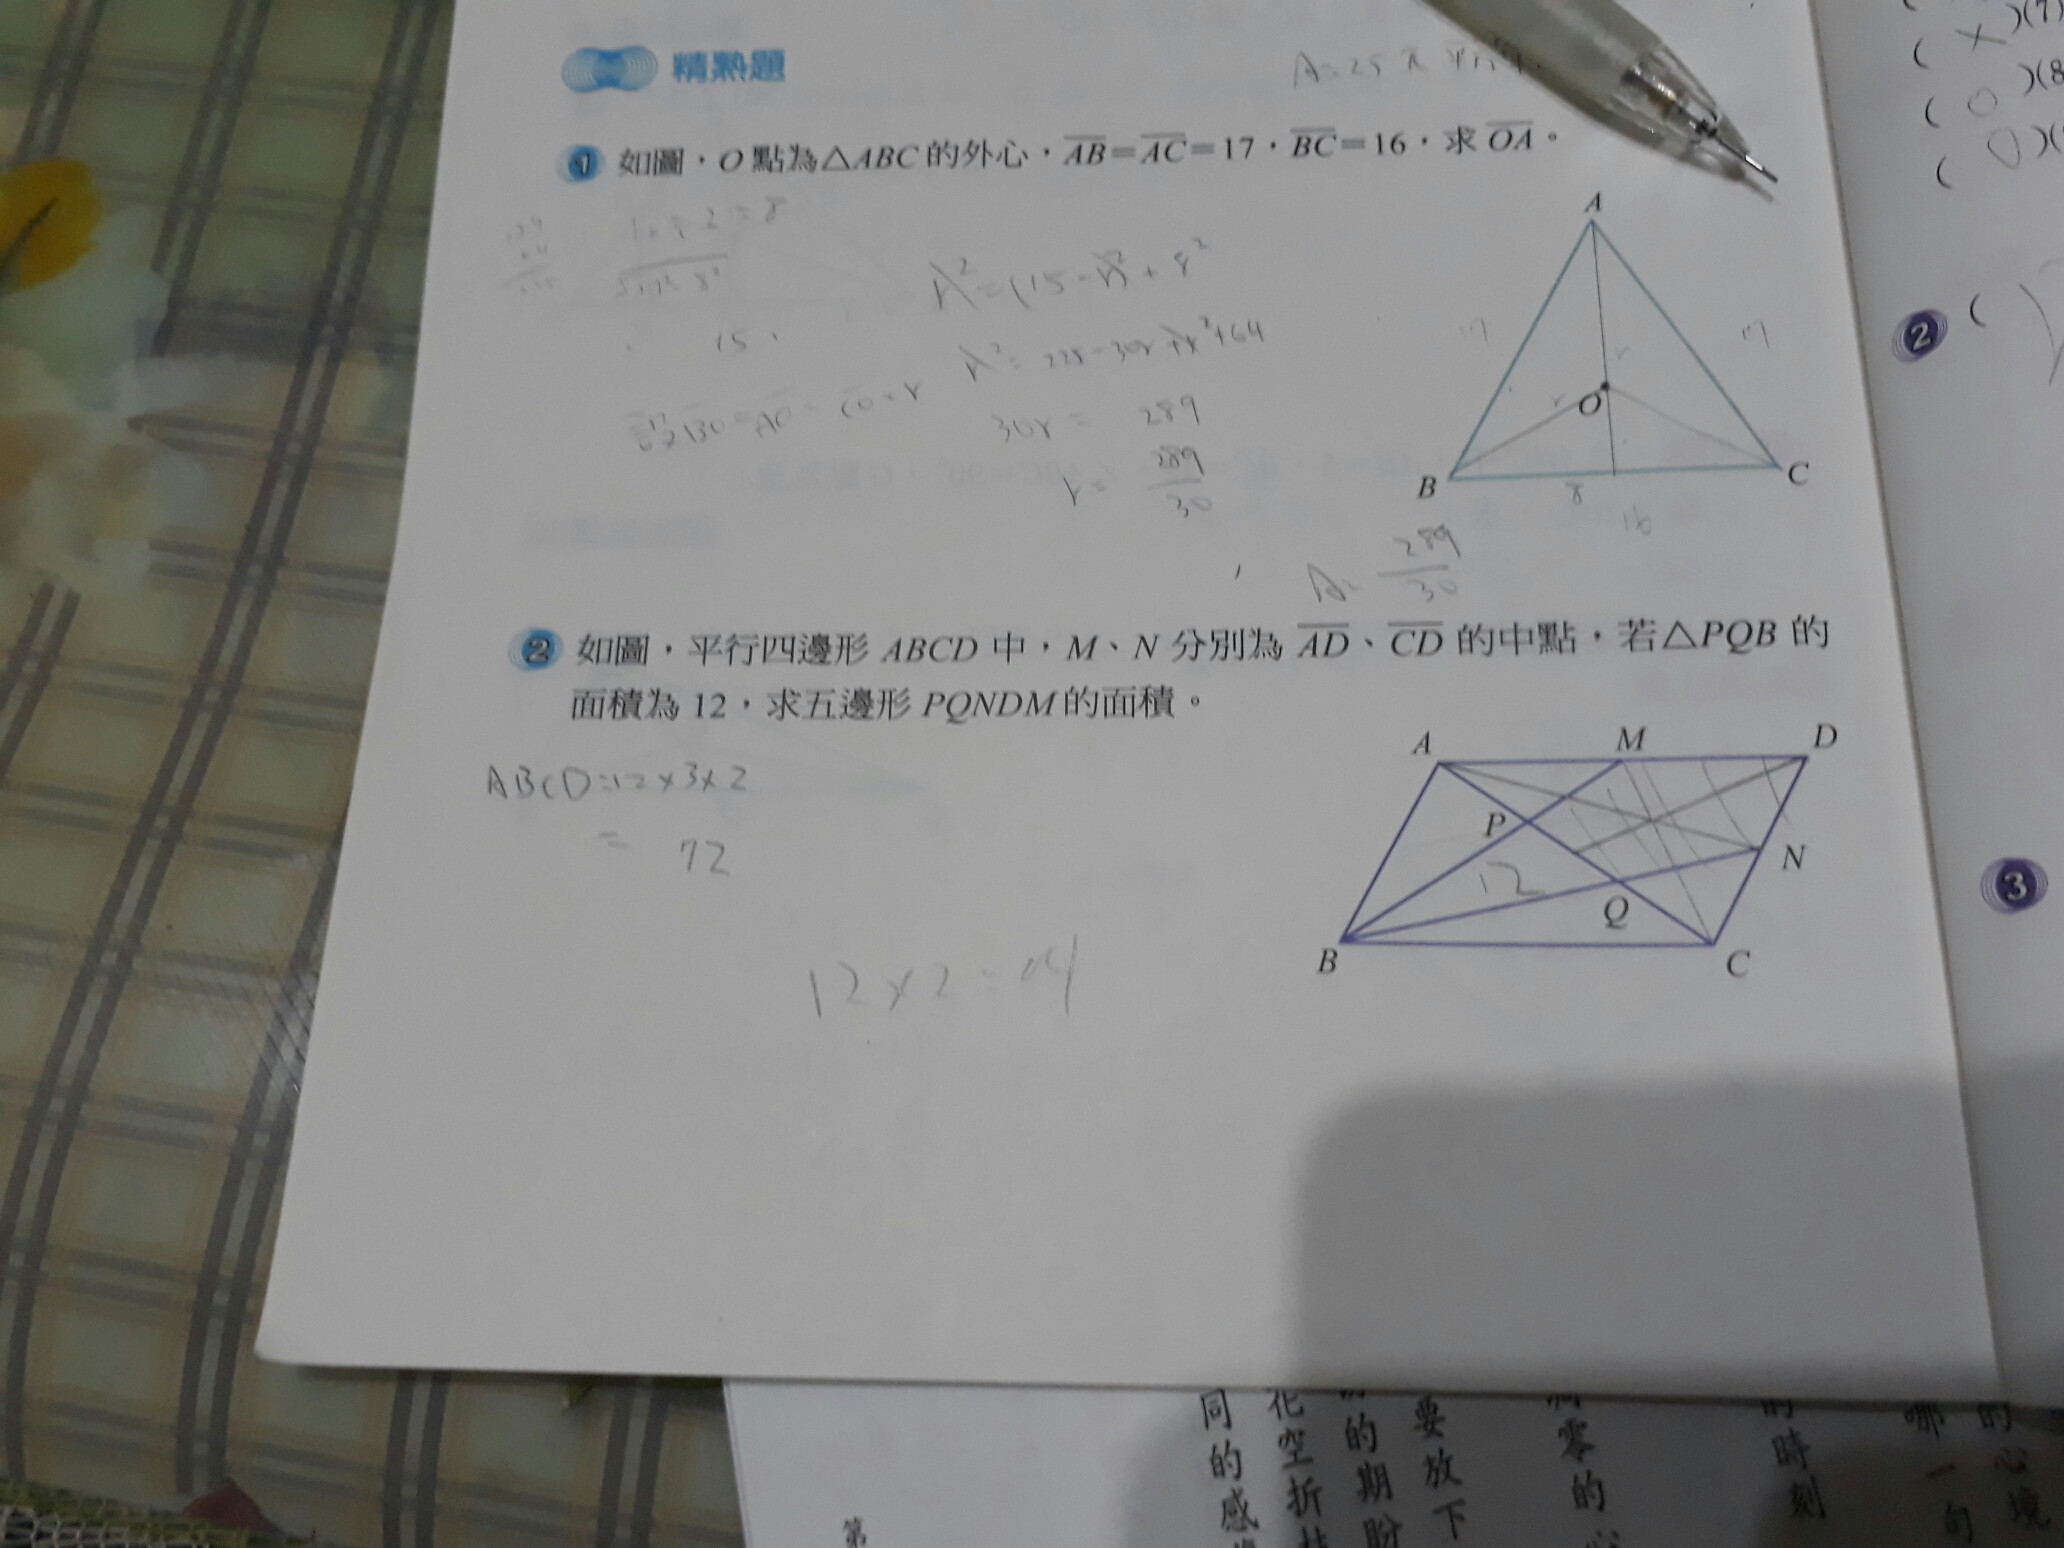 精熟題
1 如圖，O 點為△ABC 的外心，AB=AC=17，BC=16，求 OA。
A
r² = (15-r)² + 8²
15
r² = 225-30r+r²+64
BO = AO = CO = r
30r = 289
r = 289/30
17
17
r
r
O
B
C
8
16
A = 289/30
2 如圖，平行四邊形 ABCD 中，M、N 分別為 AD、CD 的中點，若△PQB 的
面積為 12，求五邊形 PQNDM 的面積。
ABCD=12×3×2
= 72
12×2=24
A
M
D
P
N
12
Q
B
C
( × )(7)
( ○ )(8
( ○ )(
2 (
3
同的感
花空折
的期盼
要放下
零的心
的時刻
哪一句
的心境
第